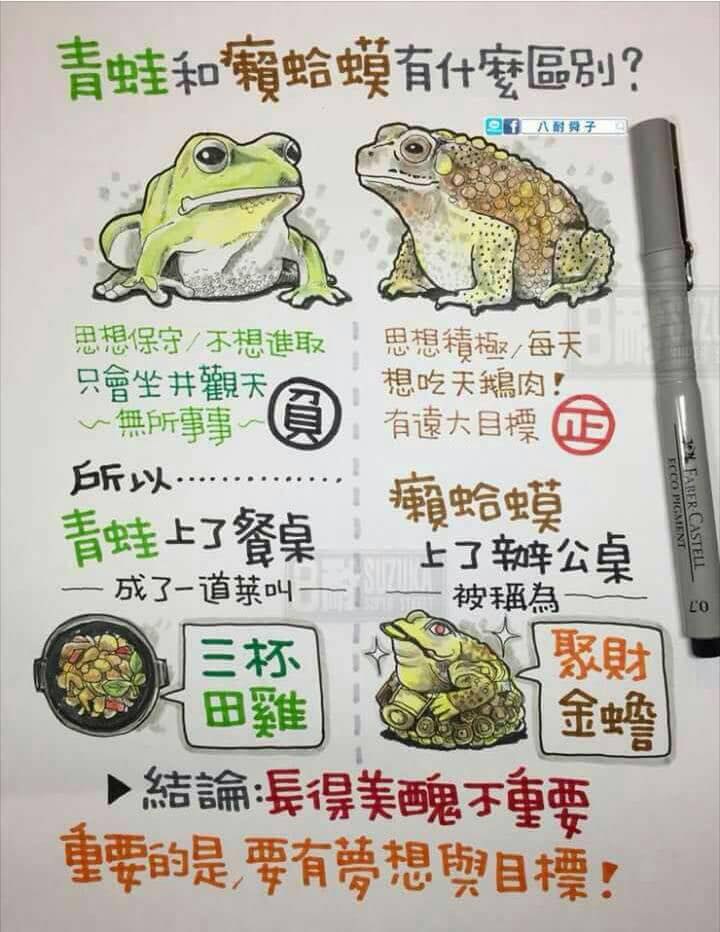 青蛙和癩蛤蟆有什麼區別?
八耐舜子
思想保守/不想進取
只會坐井觀天
~無所事事~
負
思想積極/每天
想吃天鵝肉!
有遠大目標
正
所以‥‥‥‥‥‥
青蛙上了餐桌
成了一道菜叫
三杯
田雞
癩蛤蟆
上了辦公桌
被稱為
聚財
金蟾
▶結論:長得美醜不重要
重要的是/要有夢想與目標!
FABER CASTELL
ECCO PIGMENT
0.7